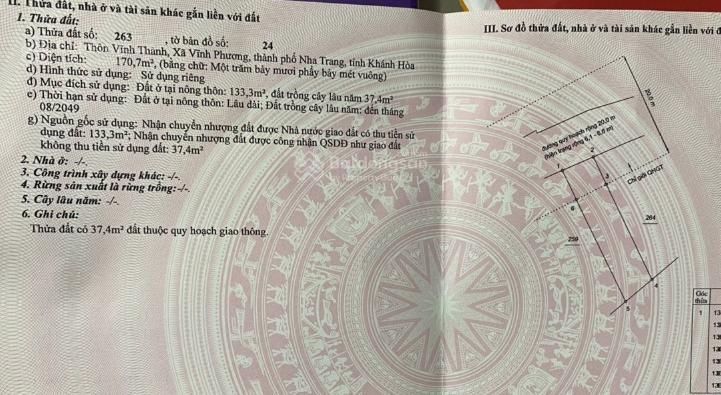 II. Thửa đất, nhà ở và tài sản khác gắn liền với đất
1. Thửa đất:
a) Thửa đất số: 263 , tờ bản đồ số: 24
b) Địa chỉ: Thôn Vĩnh Thành, Xã Vĩnh Phương, thành phố Nha Trang, tỉnh Khánh Hòa
c) Diện tích: 170,7m², (bằng chữ: Một trăm bảy mươi phẩy bảy mét vuông)
d) Hình thức sử dụng: Sử dụng riêng
đ) Mục đích sử dụng: Đất ở tại nông thôn: 133,3m², đất trồng cây lâu năm 37,4m²
e) Thời hạn sử dụng: Đất ở tại nông thôn: Lâu dài; Đất trồng cây lâu năm: đến tháng
08/2049
g) Nguồn gốc sử dụng: Nhận chuyển nhượng đất được Nhà nước giao đất có thu tiền sử
dụng đất: 133,3m²; Nhận chuyển nhượng đất được công nhận QSDĐ như giao đất
không thu tiền sử dụng đất: 37,4m²
2. Nhà ở: -/-.
3. Công trình xây dựng khác: -/-.
4. Rừng sản xuất là rừng trồng:-/-.
5. Cây lâu năm: -/-.
6. Ghi chú:
Thửa đất có 37,4m² đất thuộc quy hoạch giao thông.
Batdongsan
III. Sơ đồ thửa đất, nhà ở và tài sản khác gắn liền với đ
20.0 m
đường quy hoạch rộng 20.0 m
(hiện trạng rộng 6.1 - 6.6 m)
Chỉ giới QHGT
1
2
3
4
5
6
259
264
Góc
thửa
1 13
13
13
13
13
13
13